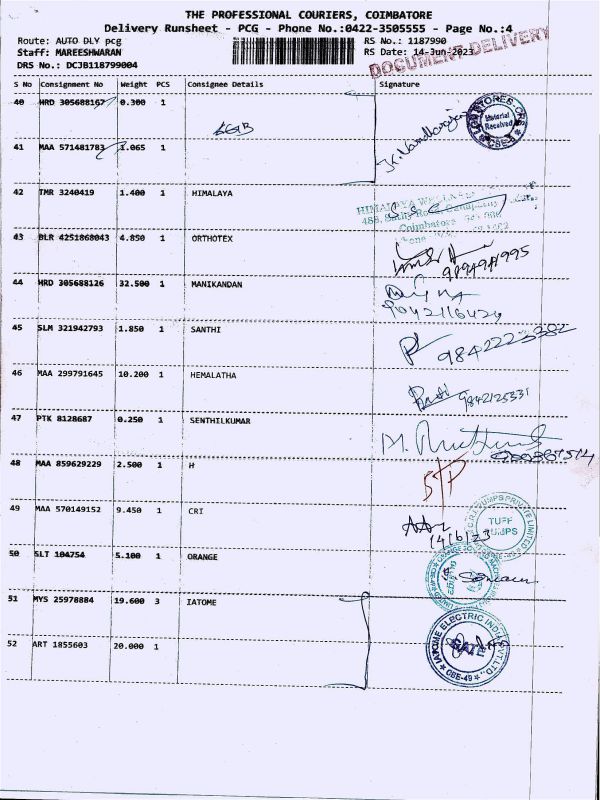 THE PROFESSIONAL COURIERS, COIMBATORE
Delivery Runsheet - PCG - Phone No.:0422-3505555 - Page No.:4
Route: AUTO DLY pcg
RS No.: 1187990
Staff: MAREESHWARAN
RS Date: 14-Jun-2023
DRS No.: DCJB118799004
DOCUMENT DELIVERY
S No Consignment No Weight PCS Consignee Details Signature
40 HRD 305688167 0.300 1
STORES-CRS
Material
Received
41 MAA 571481783 1.065 1
42 TMR 3240419 1.400 1 HIMALAYA
HIMALAYA
Coimbatore
43 BLR 4251868043 4.850 1 ORTHOTEX
44 HRD 305688126 32.500 1 MANIKANDAN
9042116424
45 SLM 321942793 1.850 1 SANTHI
9842223382
46 MAA 299791645 10.200 1 HEMALATHA
9842125331
47 PTK 8128687 0.250 1 SENTHILKUMAR
48 MAA 859629229 2.500 1 H
STP
49 MAA 570149152 9.450 1 CRI
C.R.I. PUMPS PRIVATE LIMITED
TUFF
PUMPS
14/6/23
50 SLT 104754 5.100 1 ORANGE
51 MYS 25978884 19.600 3 IATOME
52 ART 1855603 20.000 1
ELECTRIC INDIA PVT.LTD.
GATE
CBE-49